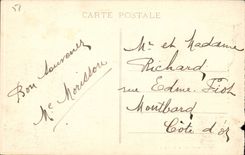 51
CARTE POSTALE
Bon Souvenir
Me Morisson
Mr et Madame
Richard
rue Edme Piot
Montbard
Côte d'or